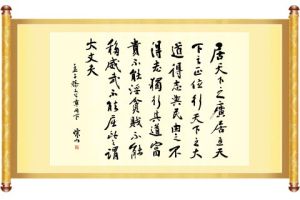 居天下之廣居立天
下之正位行天下之大
道得志與民由之不
得志獨行其道富
貴不能淫貧賤不能
移威武不能屈此之謂
大丈夫
孟子滕文公章句下